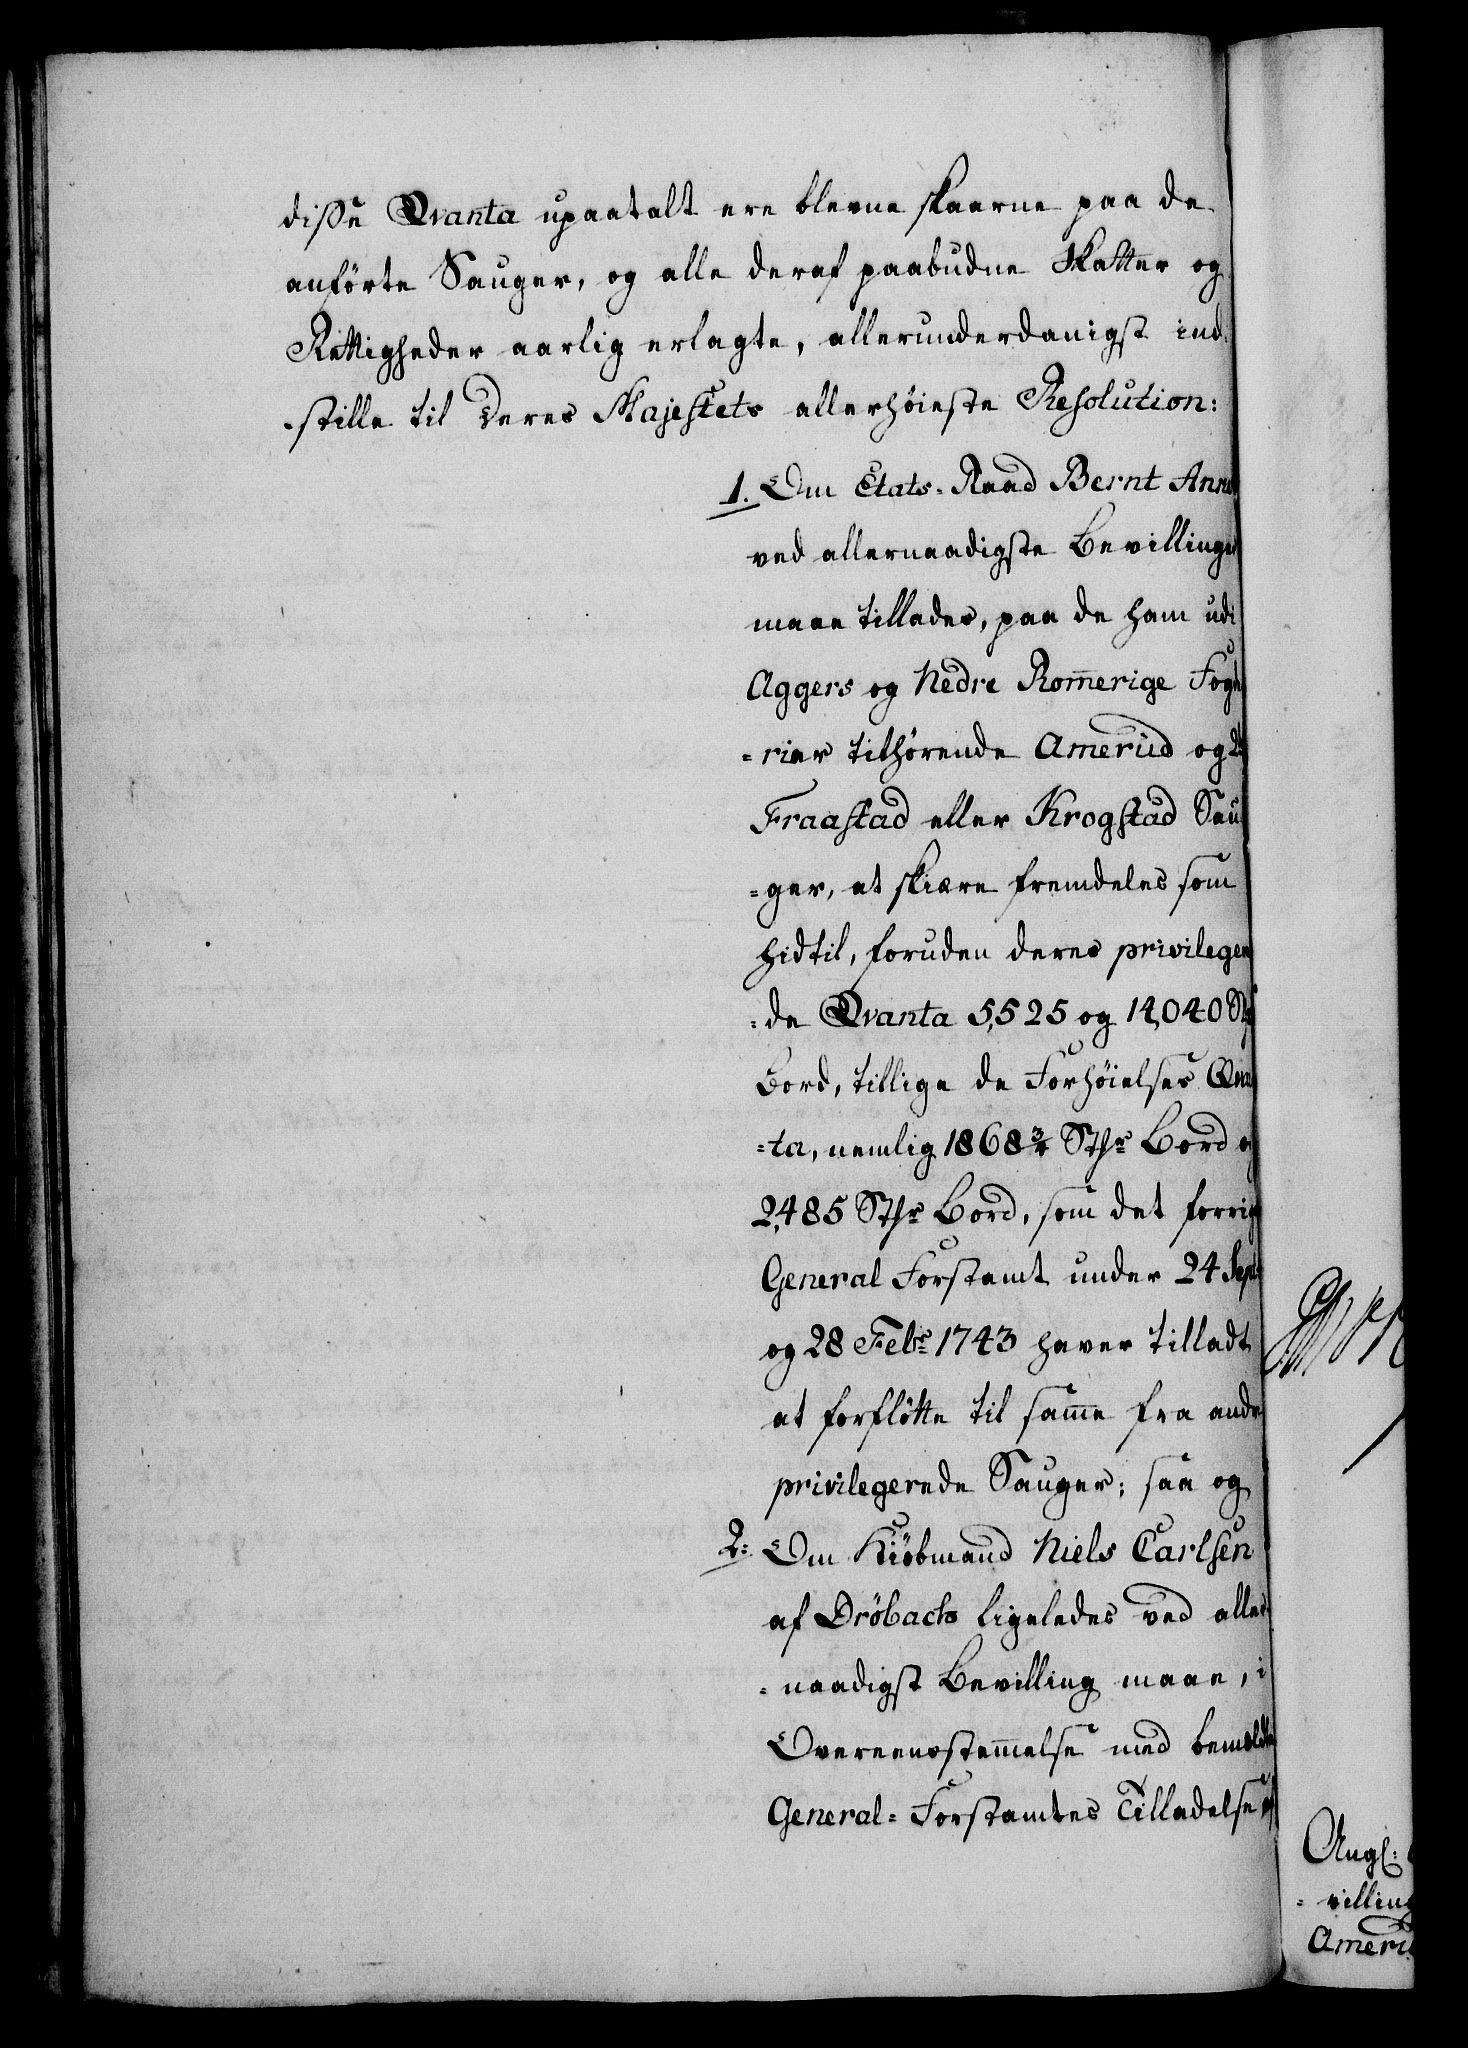 disse Qvanta upaatalt ere blevne skaarne paa de
anförte Sauger, og alle deraf paabudne Skatter og
Rettigheder aarlig erlagte, allerunderdanigst ind-
stille til Deres Majestets allerhöieste Resolution:
1. Om Etats-Raad Bernt
ved allernaadigste Bevillinger
maae tillades, paa de ham udi
Aggers og Nedre Rom̄erige
=rier tilhörende Amerud og
Fraastad eller Krogstad Sau
=ger, at skiære fremdeles som
hidtil, foruden deres privilegere
=de Qvanta 5,525 og 14,040
Bord, tillige de Forhöielses Qvan
=ta, nemlig 1868¾ Sthr Bord og
2,485 Sthr Bord, som det forrige
General Forstamt under 24 Septr
og 28 Febr 1743 haver tilladt
at forflötte til sam̄e fra andre
privilegerede Sauger; saa og
2. Om Kiöbmand Niels Carlsen
af Dröbach ligeledes ved aller-
=naadigst Bevilling maae, i
Overeensstem̄else med bemeldte
General=Forstamtes Tilladelse
=villing